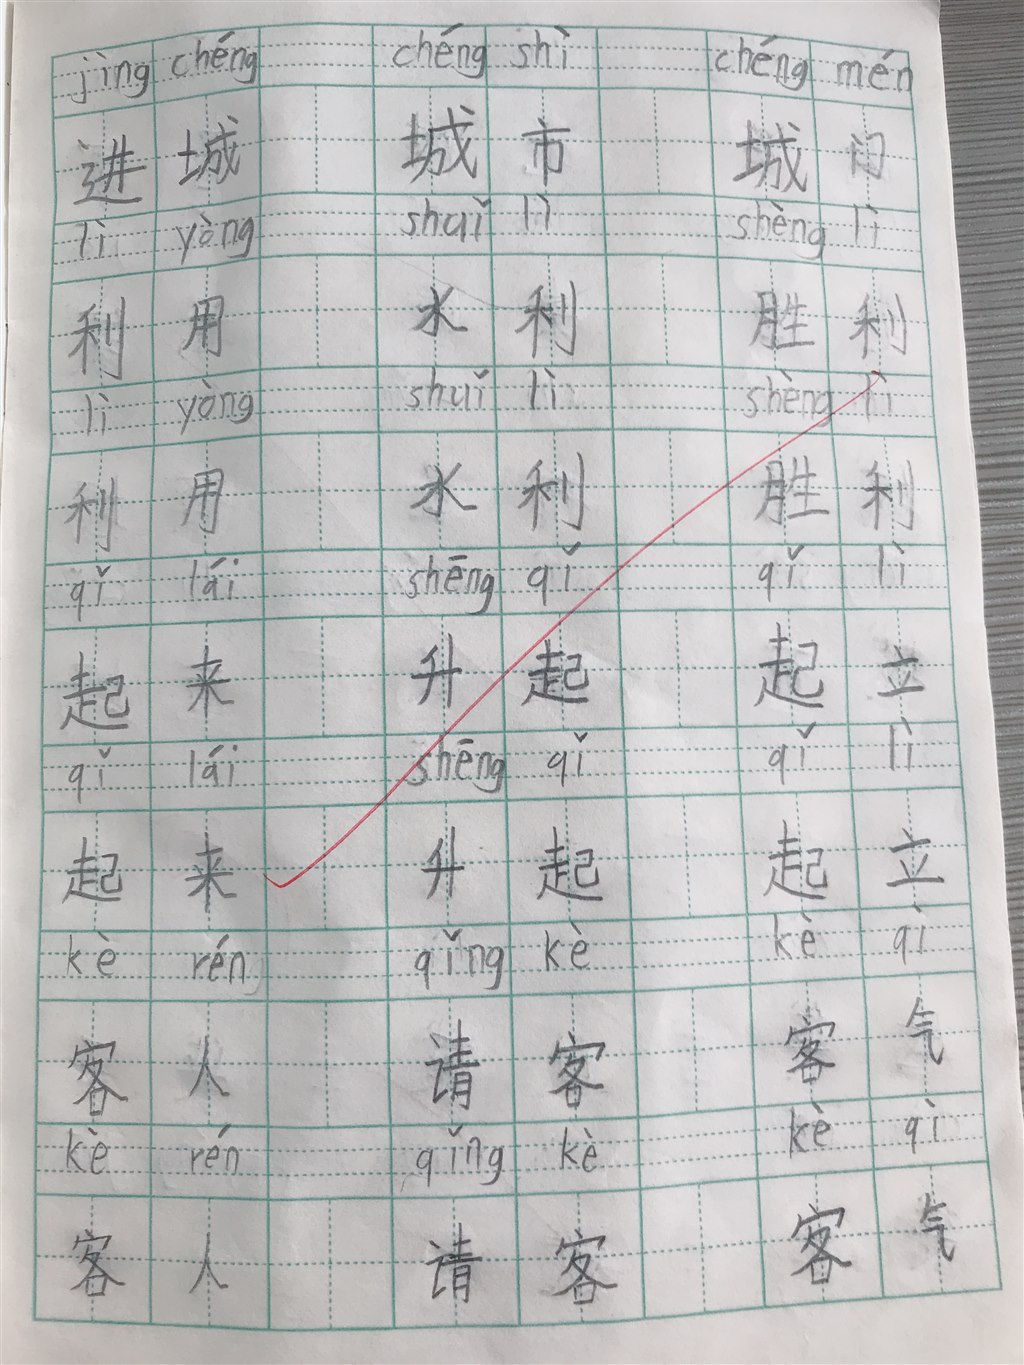 jìng chéng chéng shì chéng mén
进城 城市 城门
lì yòng shuǐ lì shèng lì
利用 水利 胜利
lì yòng shuǐ lì shèng lì
利用 水利 胜利
qǐ lái shēng qǐ qǐ lì
起来 升起 起立
qǐ lái shēng qǐ qǐ lì
起来 升起 起立
kè rén qǐng kè kè qì
客人 请客 客气
kè rén qǐng kè kè qì
客人 请客 客气